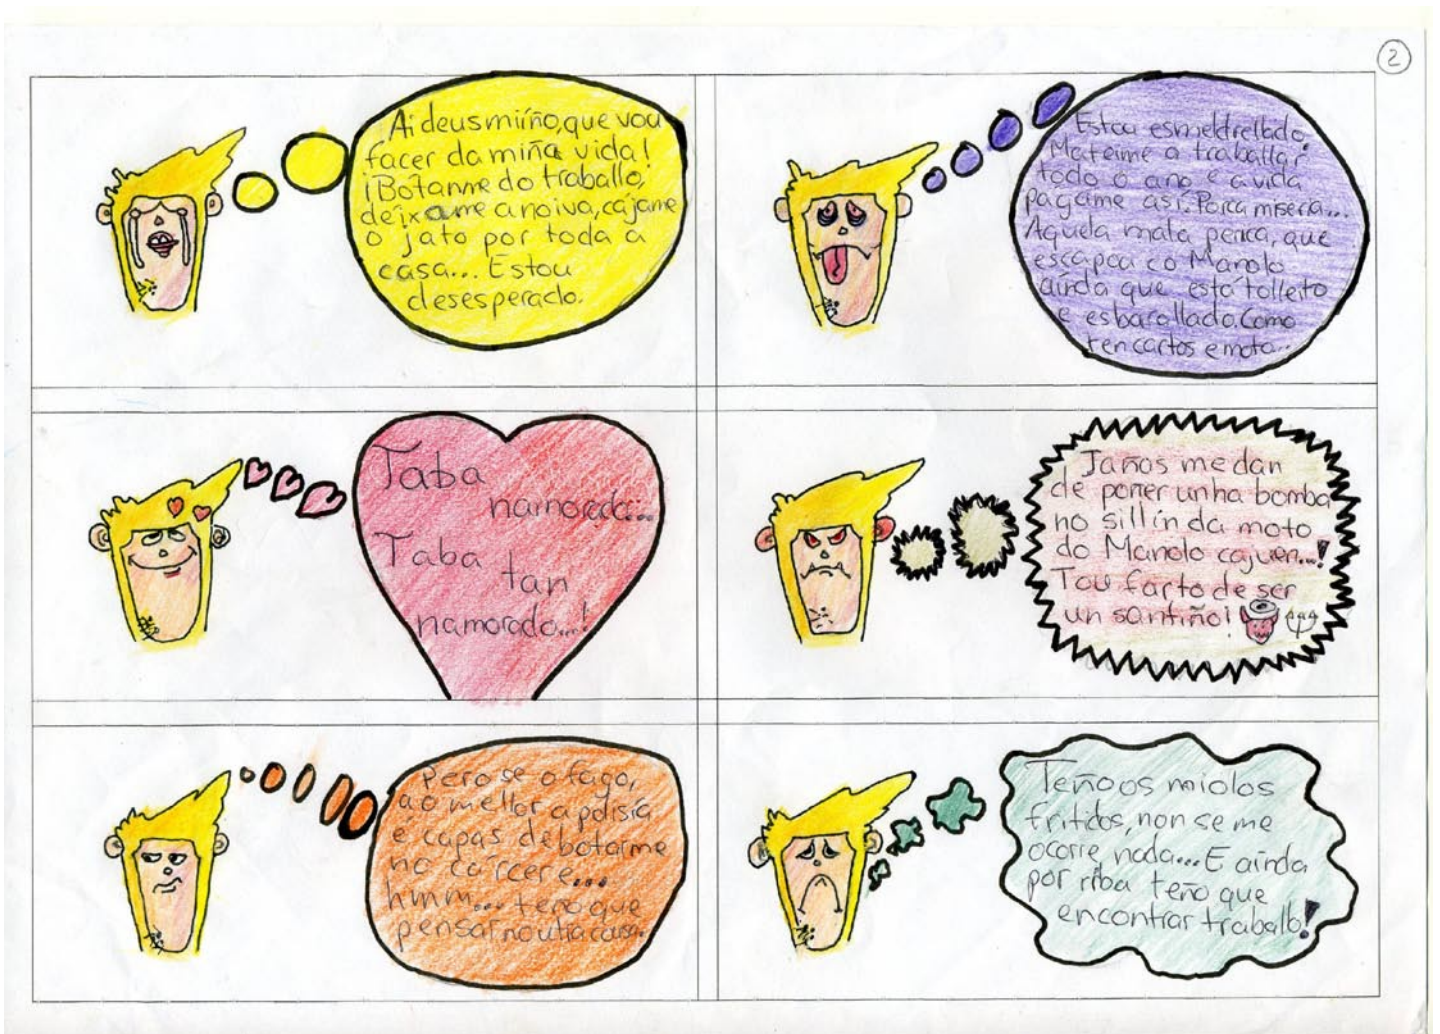 2
Ai deus miíño, que vou
facer da miña vida!
¡Bótanme do traballo,
deixame a noiva, cájame
o jato por toda a
casa... Estou
desesperado.
Estou esmeldrellado.
Mateime a traballar
todo o ano e a vida
págame así. Porca miseria...
Aquela mala perica, que
escapou co Manolo
aínda que está tolleito
e esbarollado. Como
ten cartos e moto...
Taba
namorado...
Taba
tan
namorado...!
Jañas me dan
de poñer unha bomba
no sillín da moto
do Manolo cajuen...!
Tou farto de ser
un santiño!
Pero se o fago,
ao mellor a polisía
é capas de botarme
no cárcere...
hmm... teño que
pensar noutra cousa.
Teño os miolos
fritidos, non se me
ocorre nada... E aínda
por riba teño que
encontrar traballo!